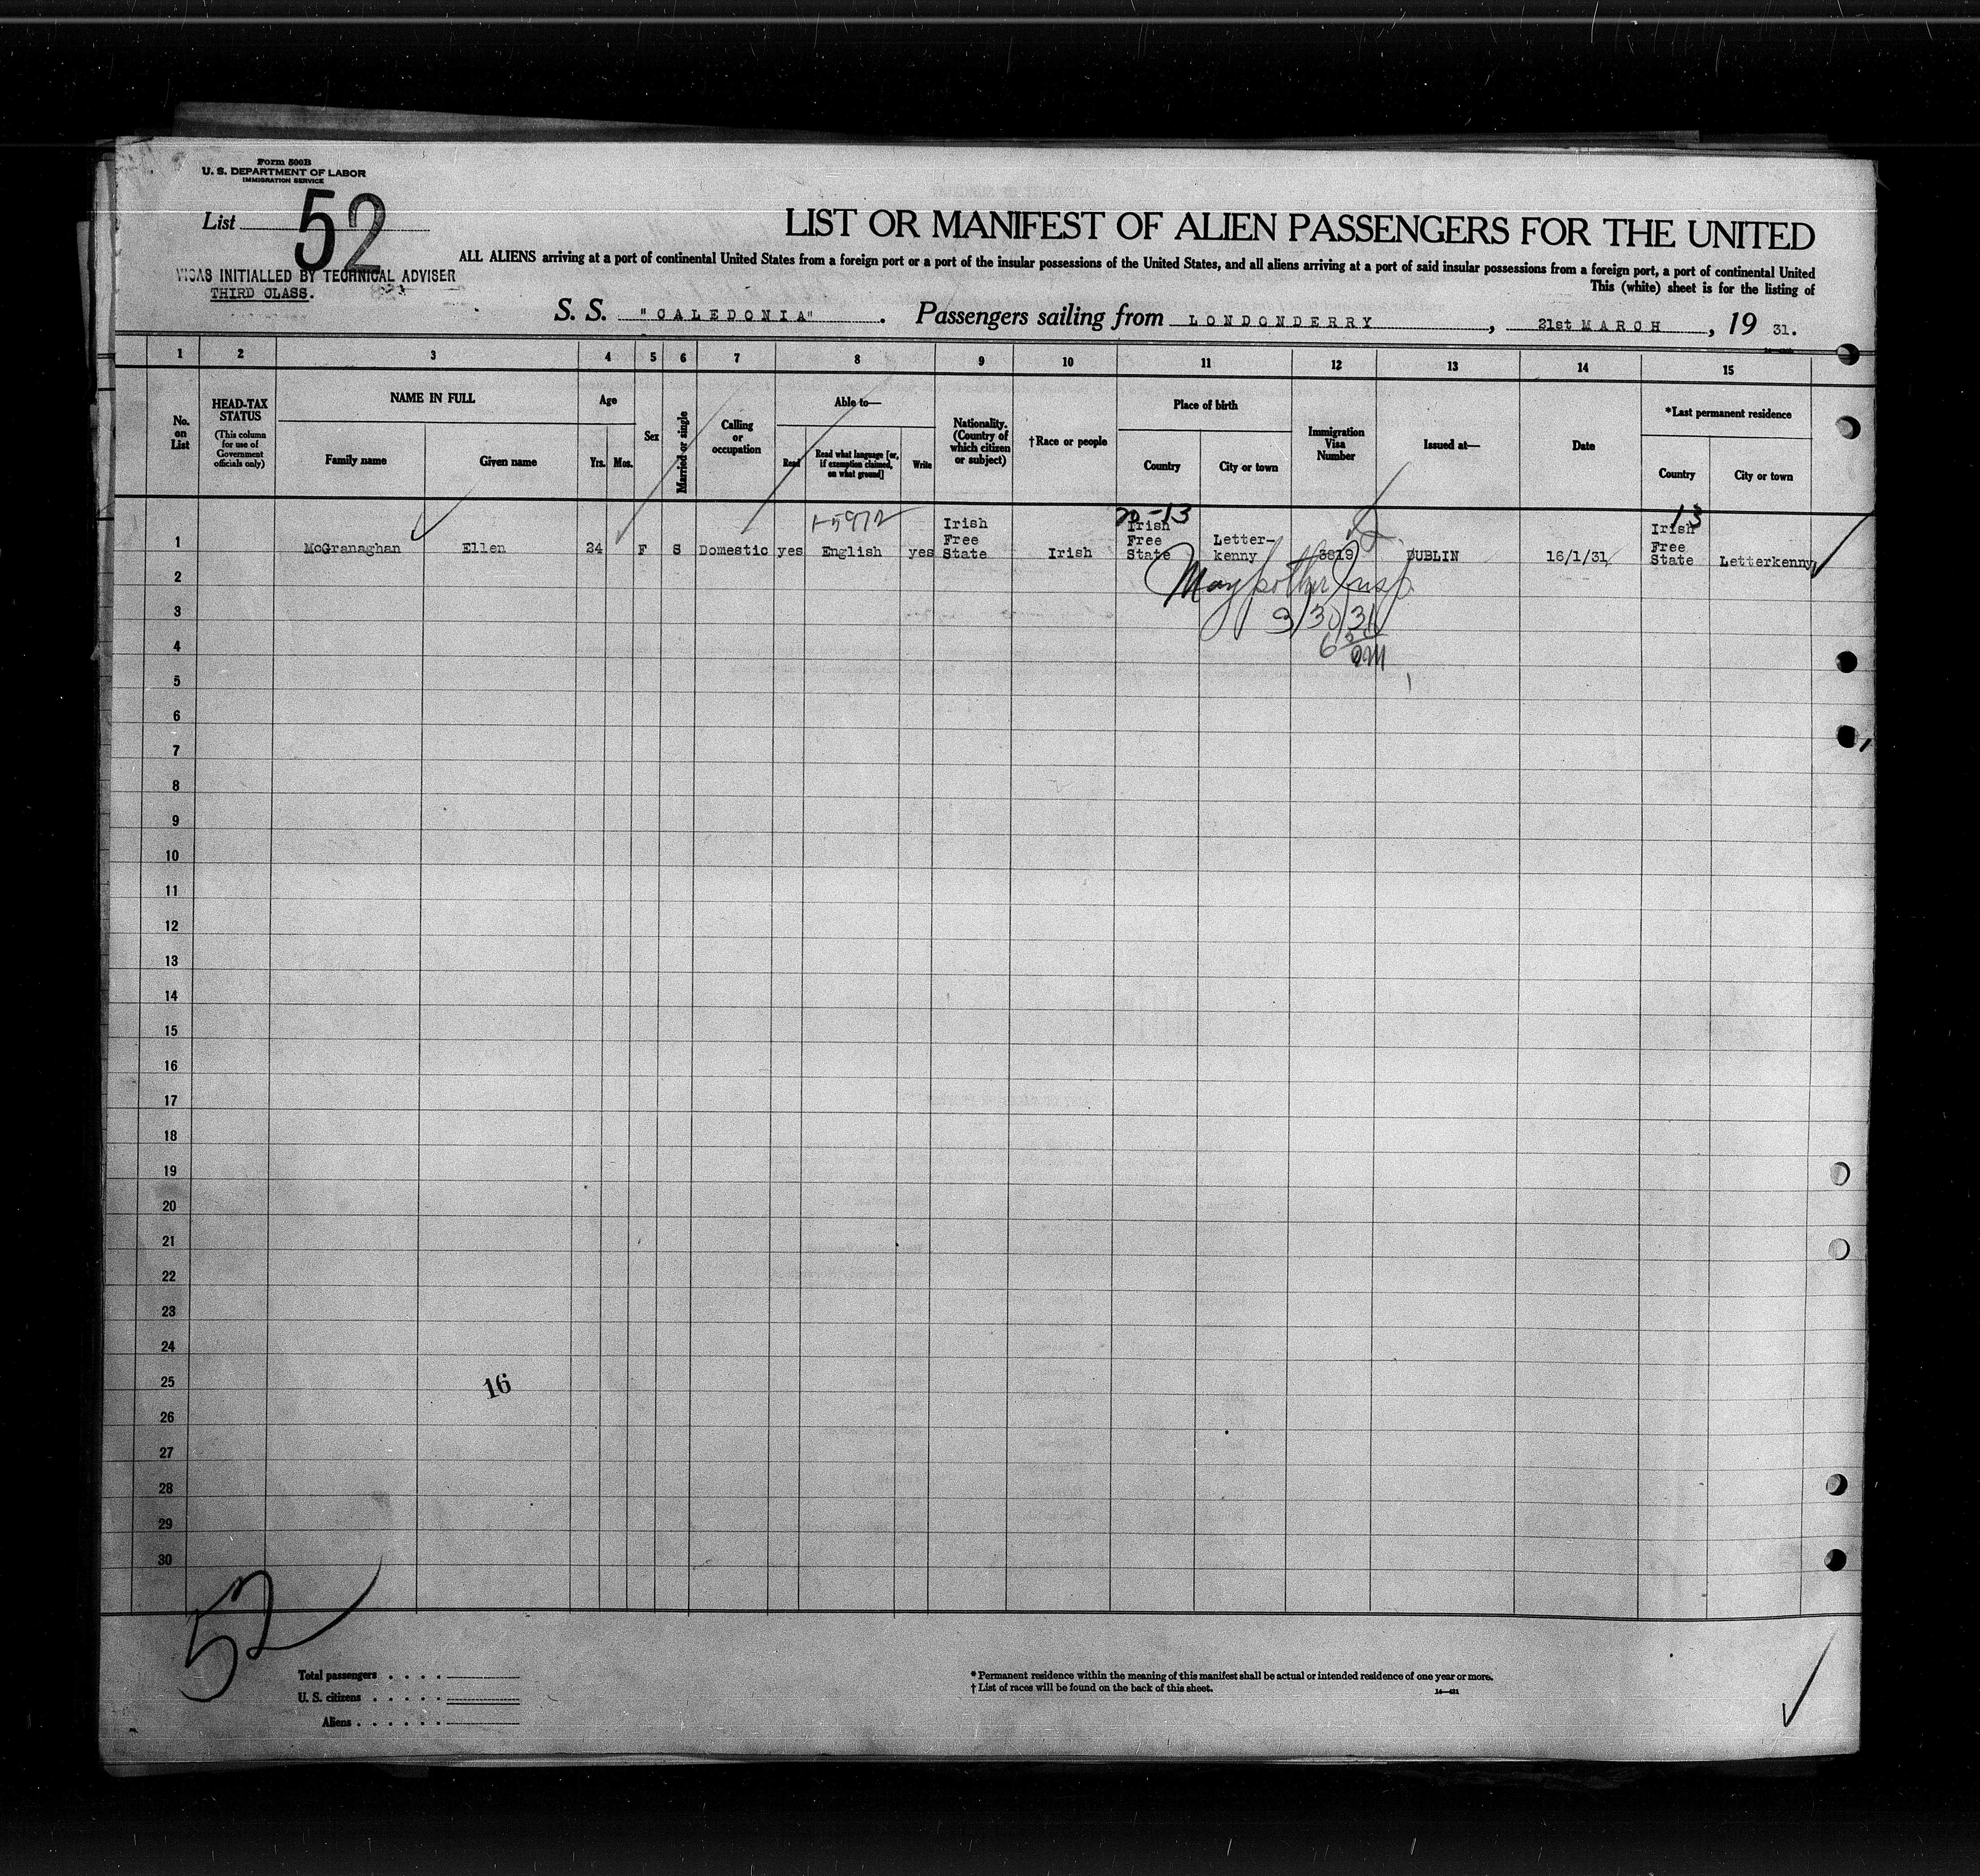 Form 500B
U. S. DEPARTMENT OF LABOR
IMMIGRATION SERVICE
List 52
VISAS INITIALLED BY TECHNICAL ADVISER
THIRD CLASS.
LIST OR MANIFEST OF ALIEN PASSENGERS FOR THE UNITED
ALL ALIENS arriving at a port of continental United States from a foreign port or a port of the insular possessions of the United States, and all aliens arriving at a port of said insular possessions from a foreign port, a port of continental United
This (white) sheet is for the listing of
S. S. "CALEDONIA". Passengers sailing from LONDONDERRY, 21st MARCH, 19 31.
1 2 3 4 5 6 7 8 9 10 11 12 13 14 15
No. on List
HEAD-TAX STATUS
(This column for use of Government officials only)
NAME IN FULL
Family name
Given name
Age
Yrs. Mos.
Sex
Married or single
Calling or occupation
Able to—
Read
Read what language [or, if exemption claimed, on what ground]
Write
Nationality. (Country of which citizen or subject)
†Race or people
Place of birth
Country
City or town
Immigration Visa Number
Issued at—
Date
*Last permanent residence
Country
City or town
20-13
13
1 McGranaghan Ellen 24 F S Domestic yes English yes Irish Free State Irish Irish Free State Letter-kenny 3819 DUBLIN 16/1/31 Irish Free State Letterkenny
2
3 3/30/31
4
5
6
7
8
9
10
11
12
13
14
15
16
17
18
19
20
21
22
23
24
25
16
26
27
28
29
30
52
Total passengers . . . .
U. S. citizens . . . . .
Aliens . . . . . .
* Permanent residence within the meaning of this manifest shall be actual or intended residence of one year or more.
† List of races will be found on the back of this sheet.